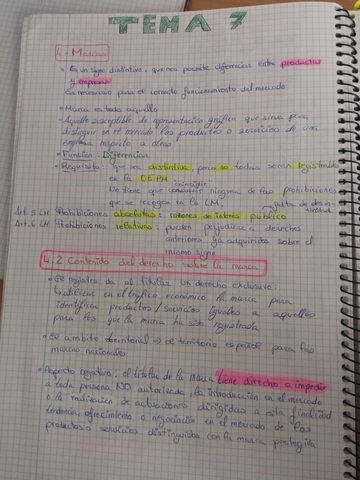 TEMA 7
4.- Marcas
• Es un signo distintivo, que nos permite diferenciar entre productos
y empresas
Es necesario para el correcto funcionamiento del mercado
• Marca es todo aquello
• Aquello susceptible de representación gráfica que sirva para
distinguir en el mercado los productos o servicios de una
empresa respecto a otras
• Función:
• Requisito: que sea distintiva, pero no todas serán registrables
en la OEPM
coincidir
No tiene que con ninguna de las prohibiciones
que se recogen en la LM, falta de dis-
tintividad
Art. 5 LM Prohibiciones absolutas: razones de interés público
Art. 6 LM Prohibiciones relativas: pueden perjudicar a derechos
anteriores ya adquiridos sobre el
mismo signo
4.2 Contenido del derecho sobre la marca
• El registro da al titular un derecho exclusivo:
utilizar en el tráfico económico la marca para
identificar productos/servicios iguales a aquellos
para los que la marca ha sido registrada
• El ámbito territorial → el territorio español para las
marcas nacionales
• Aspecto negativo: el titular de la marca tiene derecho a impedir
a toda persona NO autorizada, la introducción en el mercado
o la realización de actuaciones dirigidas a esta finalidad
ofrecimiento o negociación en el mercado de los
productos o servicios distinguidos con la marca protegida